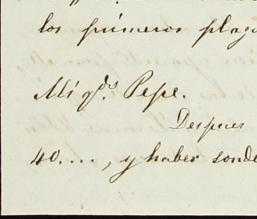 los primeros plaz
Mi qdo. Pepe.
Despues
40...., y haber sonde